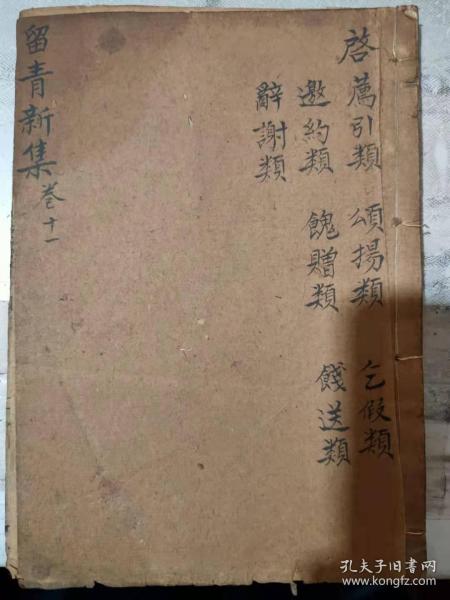 啓
薦引類 頌揚類 乞假類
邀約類 餽贈類 餞送類
辭謝類
留青新集 卷十一
孔夫子旧书网
www.kongfz.com